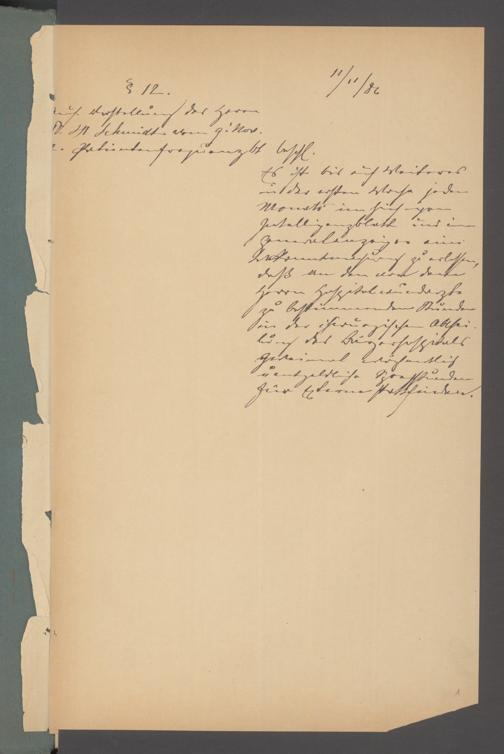 § 12.
11/11/86
Auf Vorstellung des Herrn
Dr. M Schmidt vom 9. Nov.
c. Patientenfrequenz btr. beschl.
Es ist bis auf Weiteres
in der ersten Woche jeden
Monats im hiesigen
Intelligenzblatt und im
Generalanzeiger eine
Bekanntmachung zu erlassen,
daß an den von dem
Herrn Hospitalwundarzte
zu bestimmenden Stunden
in der chirurgischen Abthei-
lung des Bürgerhospitals
zweimal wöchentlich
unentgeldliche Sprechstunden
für Externe stattfinden.